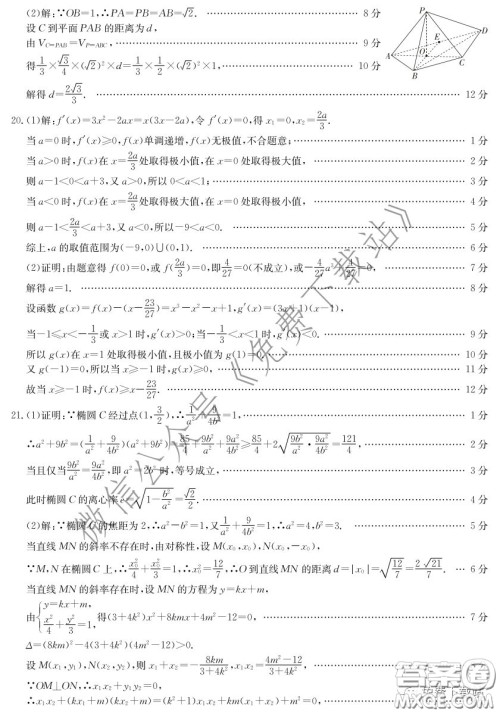 (2)解:∵OB=1,∴PA=PB=AB=√2. 8分
设C到平面PAB的距离为d,
由V_{C-PAB}=V_{P-ABC}, 9分
得1/3×√3/4×(√2)²×d=1/3×1/2×(√2)²×1, 10分
解得d=2√3/3. 12分
P
D
E
A
O
C
B
20.(1)解:f′(x)=3x²-2ax=x(3x-2a),令f′(x)=0,得x₁=0,x₂=2a/3.
当a=0时,f′(x)≥0,f(x)单调递增,f(x)无极值,不合题意; 1分
当a>0时,f(x)在x=2a/3处取得极小值,在x=0处取得极大值, 2分
则a-1<0<a+3,又a>0,所以0<a<1; 3分
当a<0时,f(x)在x=2a/3处取得极大值,在x=0处取得极小值, 4分
则a-1<2a/3<a+3,又a<0,所以-9<a<0. 5分
综上,a的取值范围为(-9,0)∪(0,1). 6分
(2)证明:由题意得f(0)=0,或f(2a/3)=0,即4/27=0(不成立),或-4/27a³+4/27=0, 7分
解得a=1. 8分
设函数g(x)=f(x)-(x-23/27)=x³-x²-x+1,g′(x)=(3x+1)(x-1),
当-1≤x<-1/3或x>1时,g′(x)>0;当-1/3<x<1时,g′(x)<0. 9分
所以g(x)在x=1处取得极小值,且极小值为g(1)=0. 10分
又g(-1)=0,所以当x≥-1时,g(x)≥0, 11分
故当x≥-1时,f(x)≥x-23/27. 12分
21.(1)证明:∵椭圆C经过点(1,3/2),∴1/a²+9/4b²=1, 1分
∴a²+9b²=(1/a²+9/4b²)(a²+9b²)=85/4+9b²/a²+9a²/4b²≥85/4+2√(9b²/a²·9a²/4b²)=121/4, 2分
当且仅当9b²/a²=9a²/4b²,即a²=2b²时,等号成立, 3分
此时椭圆C的离心率e=√(1-b²/a²)=√2/2. 4分
(2)解:∵椭圆C的焦距为2,∴a²-b²=1,又1/a²+9/4b²=1,∴a²=4,b²=3. 5分
当直线MN的斜率不存在时,由对称性,设M(x₀,x₀),N(x₀,-x₀).
∵M,N在椭圆C上,∴x₀²/4+x₀²/3=1,∴x₀²=12/7,∴O到直线MN的距离d=|x₀|=√(12/7)=2√21/7. 6分
当直线MN的斜率存在时,设MN的方程为y=kx+m,
由{y=kx+m, x²/4+y²/3=1,得(3+4k²)x²+8kmx+4m²-12=0, 7分
Δ=(8km)²-4(3+4k²)(4m²-12)>0.
设M(x₁,y₁),N(x₂,y₂),则x₁+x₂=-8km/3+4k²,x₁x₂=4m²-12/3+4k².
∵OM⊥ON,∴x₁x₂+y₁y₂=0,
∴x₁x₂+(kx₁+m)(kx₂+m)=(k²+1)x₁x₂+km(x₁+x₂)+m²=0.
微信公众号《免费下载站》
答案圈